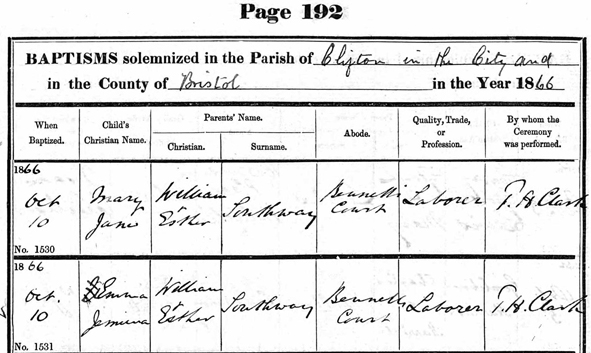 Page 192
BAPTISMS solemnized in the Parish of Clifton in the City and
in the County of Bristol in the Year 1866
When Baptized. Child's Christian Name. Parents' Name. Abode. Quality, Trade, or Profession. By whom the Ceremony was performed.
Christian. Surname.
1866
Oct 10 Mary Jane William & Esther Southway Bennetts Court Laborer T. H. Clark
No. 1530
1866
Oct. 10 Emma Jemima William & Esther Southway Bennetts Court Laborer T. H. Clark
No. 1531